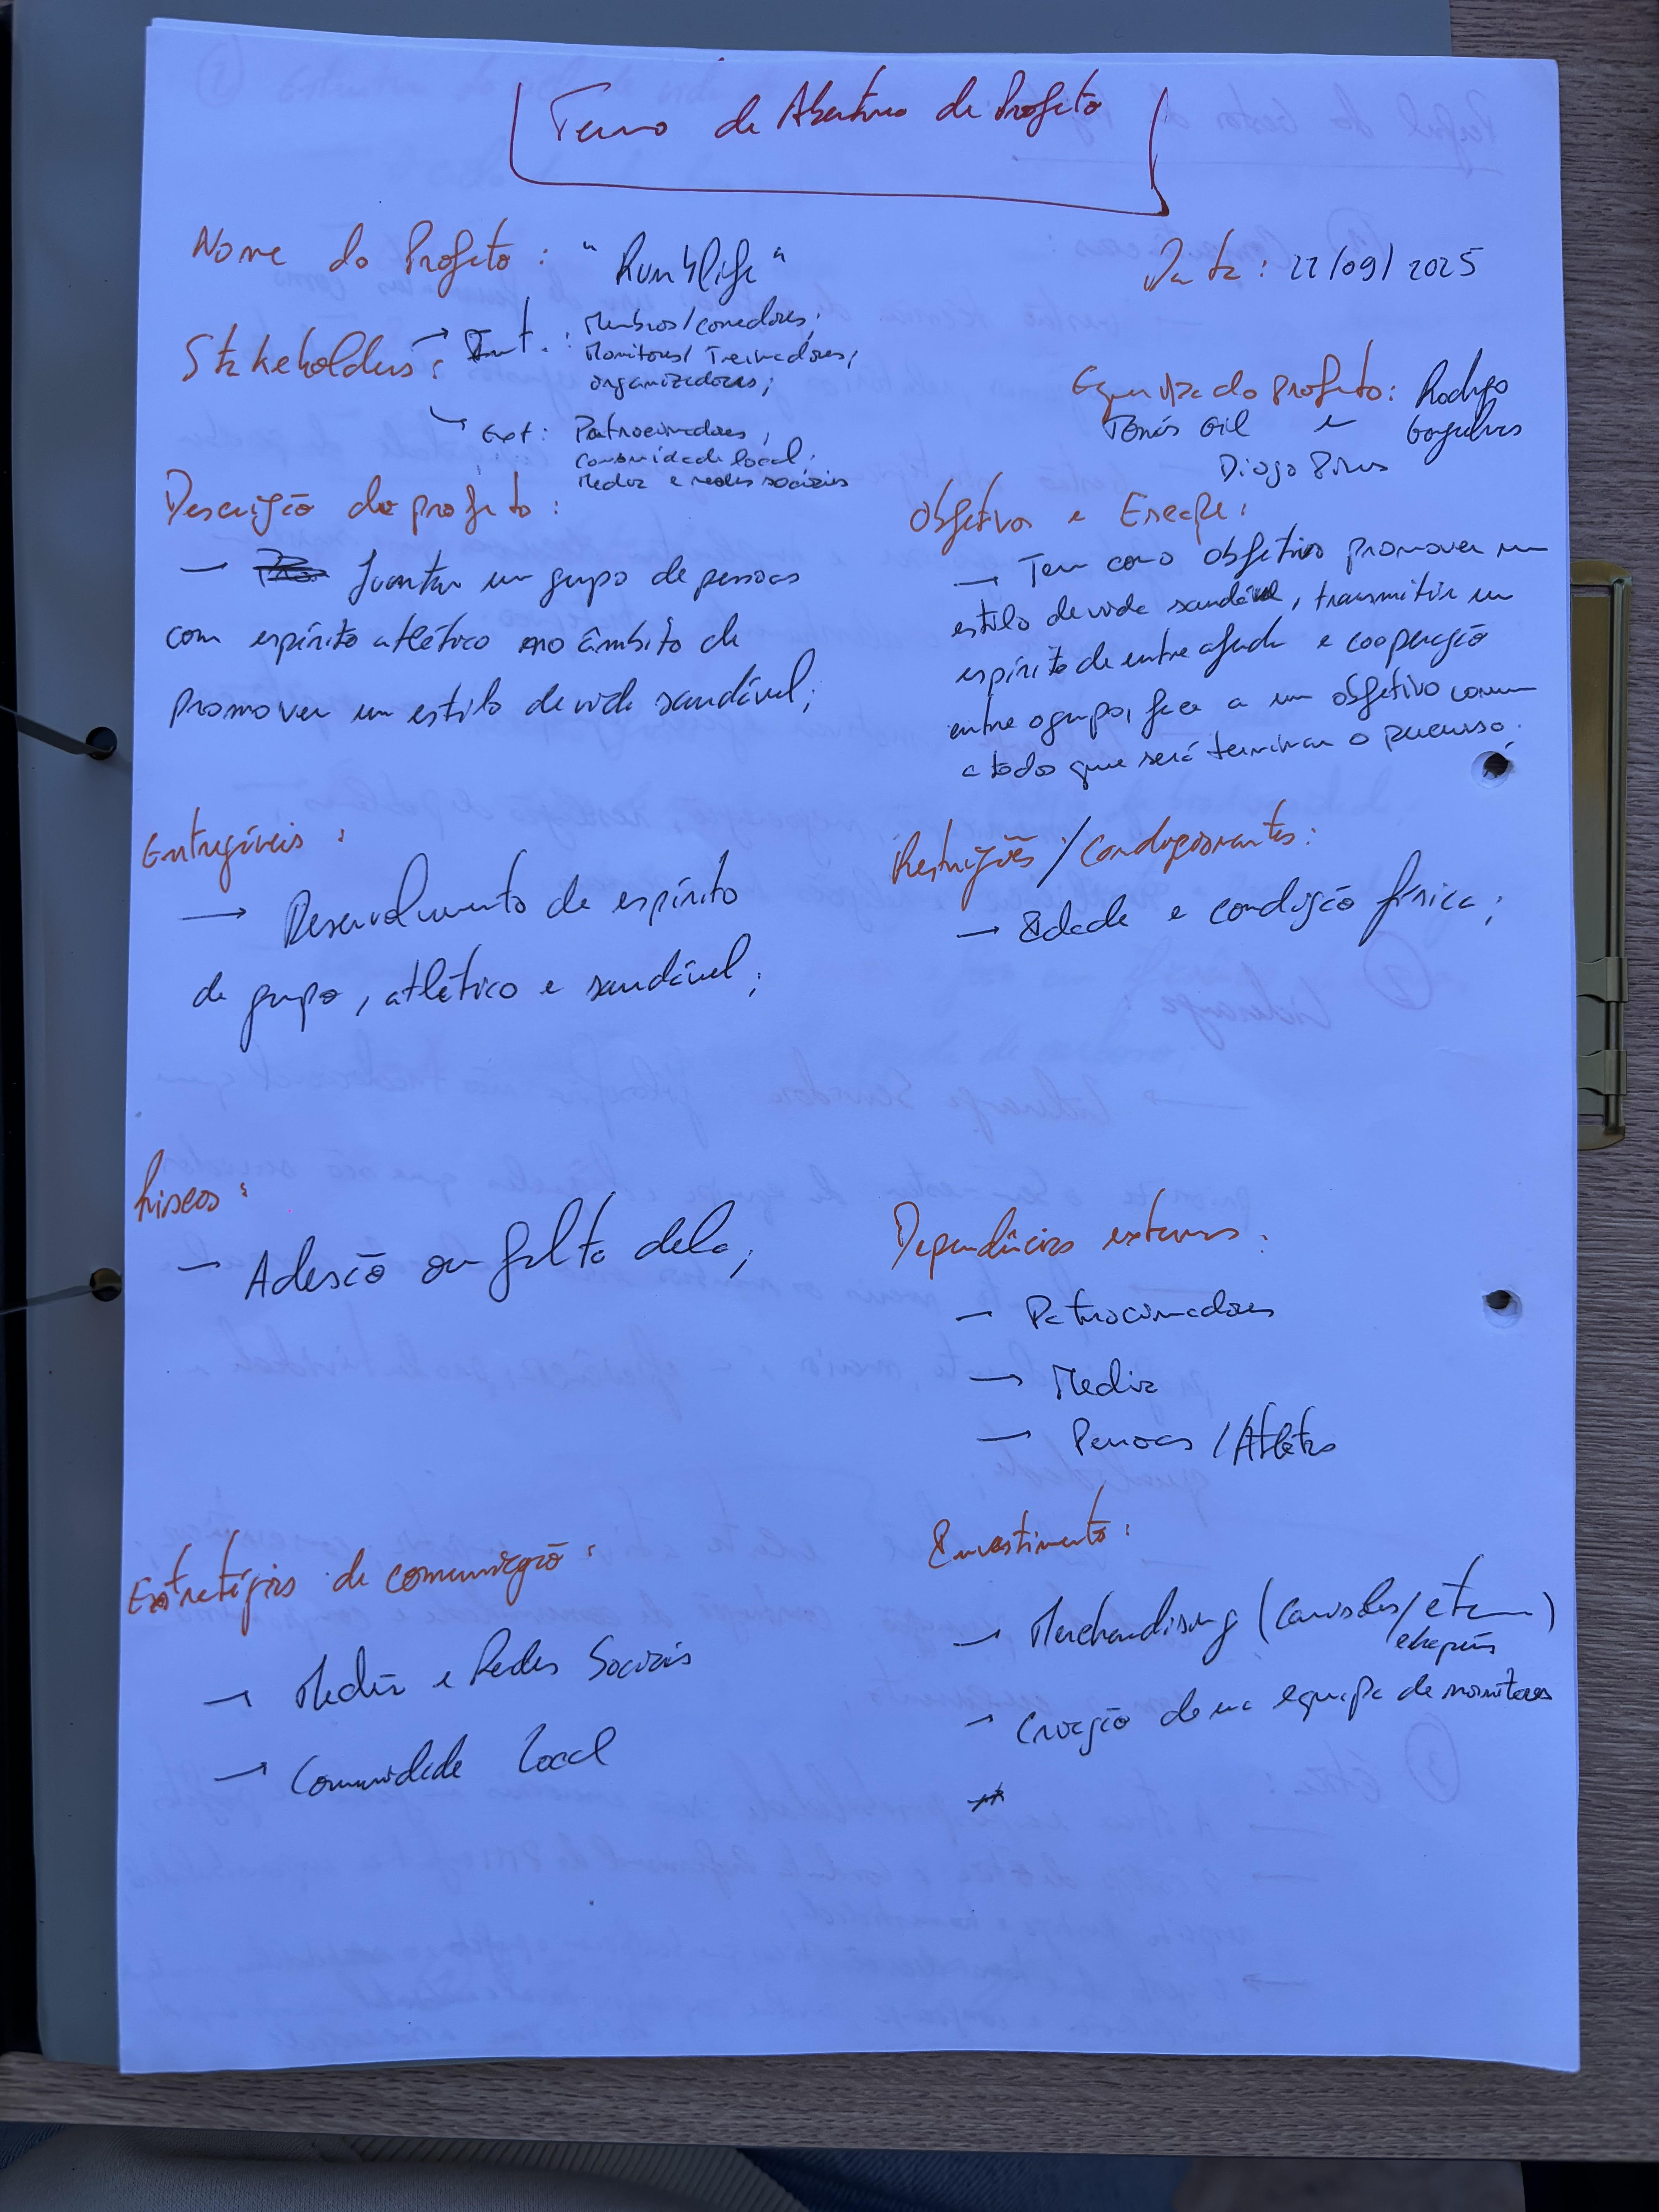 Termo de Abertura de Projeto
Nome do Projeto : "Run4life"
Data : 22/09/2025
Stakeholders : → Int. : Membros/corredores;
Monitores/Treinadores;
organizadores;
→ Ext : Patrocinadores,
comunidade local,
Media e redes sociais
Equipa do projeto: Rodrigo
Tomás Gil e Gonçalves
Diogo Pires
Descrição do projeto :
— Juntar um grupo de pessoas
com espírito atlético no âmbito de
promover um estilo de vida saudável;
Objetivos e Escopo :
→ Tem como objetivo promover um
estilo de vida saudável, transmitir um
espírito de entre ajuda e cooperação
entre o grupo, face a um objetivo comum
a todos que será terminar o percurso.
Entregáveis :
→ Desenvolvimento de espírito
de grupo, atlético e saudável;
Restrições /
→ Idade e condição física;
Riscos :
— Adesão ou falta dela;
Dependências externas :
— Patrocinadores
→ Media
→ Pessoas /Atletas
Estratégias de comunicação :
→ Media e Redes Sociais
→ Comunidade Local
Investimento :
→ Merchandising (camisolas/etc)
chapéus
→ Criação de uma equipa de monitores